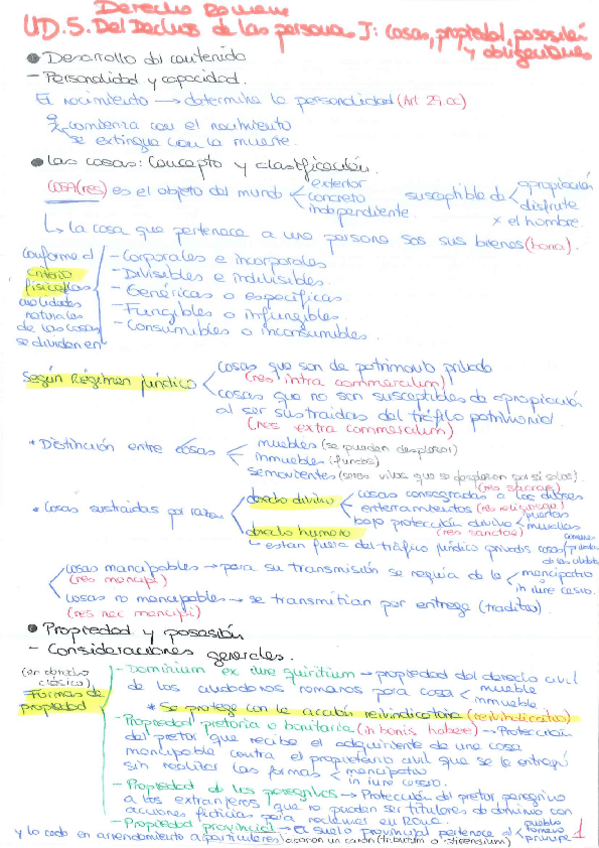 Derecho Romano
UD.5. Del Derecho de las personas I: cosas, propiedad, posesión
y obligaciones
● Desarrollo del contenido
- Personalidad y capacidad.
El nacimiento → determina la personalidad (Art 29.cc)
comienza con el nacimiento
se extingue con la muerte.
● Las cosas: Concepto y clasificación.
COSA (res) es el objeto del mundo
exterior
concreto
independiente
susceptible de
apropiación
disfrute
x el hombre.
↳ la cosa que pertenece a una persona son sus bienes (bona).
Conforme al
criterio
físico/las
cualidades
naturales
de las cosas
se dividen en
- Corporales e incorporales
- Divisibles e indivisibles.
- Genéricas o específicas
- Fungibles o infungibles.
- Consumibles o inconsumibles.
Según Régimen jurídico
cosas que son de patrimonio privado
(res intra commercium)
cosas que no son susceptibles de apropiación
al ser sustraidas del tráfico patrimonial.
(res extra commercium)
* Distinción entre cosas
muebles (se pueden desplazar)
inmuebles (fundos)
semovientes (seres vivos que se desplazan por si solos).
* Cosas sustraidas por razón
derecho divino
cosas consagradas a los dioses
(res sacrae)
enterramientos (res religiosae)
bajo protección divina
puertas
murallas
(res sanctae)
derecho humano
estan fuera del tráfico jurídico privado cosas
cosas mancipables → para su transmisión se requía de la
(res mancipi)
mancipatio
in iure cesio.
cosas no mancipables → se transmitian por entrega (traditio)
(res nec mancipi)
● Propiedad y posesión
- Consideraciones generales.
(en derecho
clásico)
Formas de
propiedad
- Dominium ex iure quiritium → propiedad del derecho civil
de los ciudadanos romanos para cosa
mueble
inmueble.
* Se protege con la acción reivindicatoria (reivindicatio)
- Propiedad pretoria o bonitaria (in bonis habere) → Protección
del pretor que recibe el adquirente de una cosa
mancipable contra el propietario civil que se la entregó
sin realizar las formas
mancipatio
in iure cesio.
- Propiedad de los peregrinos → Protección del pretor peregrino
a los extranjeros que no puedan ser titulares de dominio con
acciones ficticias para reclamar en Roma.
- Propiedad provincial → el suelo provincial pertenece al
pueblo
romano
príncipe
y lo cede en arrendamiento a particulares
1